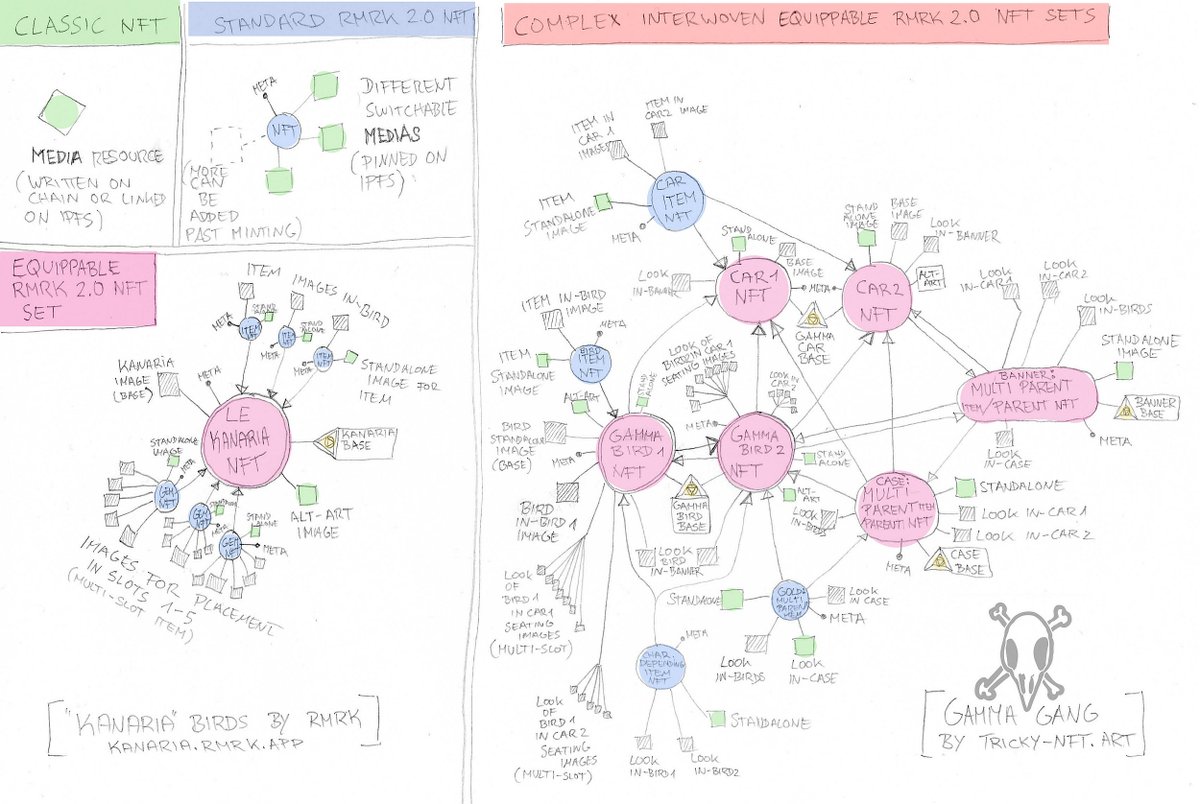 CLASSIC NFT
MEDIA RESOURCE
(WRITTEN ON
CHAIN OR LINKED
ON IPFS)
STANDARD RMRK 2.0 NFT
META
NFT
DIFFERENT
SWITCHABLE
MEDIAS
(PINNED ON
IPFS)
(MORE
CAN
BE
ADDED
PAST MINTING)
EQUIPPABLE
RMRK 2.0 NFT
SET
ITEM IMAGES IN-BIRD
META
STAND
ALONE
ITEM
NFT
META
STAND
ALONE
ITEM
NFT
META
ITEM
NFT
STANDALONE
IMAGE FOR
ITEM
KANARIA
IMAGE
(BASE)
META
LE
KANARIA
NFT
KANARIA
BASE
STANDALONE
IMAGE
META
GEM
NFT
STANDALONE
GEM
NFT
META
STAND
ALONE
GEM
NFT
META
ALT-ART
IMAGE
IMAGES FOR PLACEMENT
IN SLOTS 1-5
(MULTI-SLOT
ITEM)
["KANARIA" BIRDS BY RMRK
KANARIA.RMRK.APP]
COMPLEX INTERWOVEN EQUIPPABLE RMRK 2.0 NFT SETS
ITEM IN
CAR 1
IMAGES
ITEM IN
CAR2 IMAGE
CAR
ITEM
NFT
ITEM
STANDALONE
IMAGE
META
STAND
ALONE
BASE
IMAGE
LOOK
IN-BANNER
CAR 1
NFT
META
GAMMA
CAR
BASE
STAND
ALONE
IMAGE
BASE
IMAGE
LOOK
IN-BANNER
CAR2
NFT
ALT-
ART
LOOK
IN-CAR1
LOOK
IN-CAR2
LOOK
IN-BIRDS
STANDALONE
IMAGE
BANNER:
MULTI PARENT
ITEM/PARENT NFT
BANNER
BASE
META
LOOK
IN-CASE
ITEM IN-BIRD
IMAGE
META
BIRD
ITEM
NFT
ITEM
STANDALONE
IMAGE
ALT-ART
STAND
ALONE
LOOK OF
BIRD2 IN CAR 1
SEATING IMAGES
LOOK IN
CAR 2
BIRD
STANDALONE
IMAGE
(BASE)
META
GAMMA
BIRD 1
NFT
META
GAMMA
BIRD 2
NFT
STAND
ALONE
ALT-
ART
GAMMA
BIRD
BASE
BIRD
IN-BIRD 1
IMAGE
LOOK
BIRD
IN-BANNER
LOOK
IN-BIRDS
CASE:
MULTI
PARENT ITEM
PARENT NFT
STANDALONE
LOOK IN-CAR 1
LOOK IN-CAR 2
META
CASE
BASE
LOOK
OF
BIRD 1
IN CAR1
SEATING
IMAGES
(MULTI-SLOT)
STANDALONE
GOLD:
MULTI
PARENT
ITEM
LOOK
IN CASE
META
LOOK
IN-BIRDS
LOOK
IN-CASE
META
CHAR.
DEPENDING
ITEM
NFT
STANDALONE
LOOK
IN-BIRD1
LOOK
IN-BIRD2
LOOK
OF
BIRD 1
IN CAR 2
SEATING
IMAGES
(MULTI-SLOT)
[GAMMA GANG
BY TRICKY-NFT.ART]